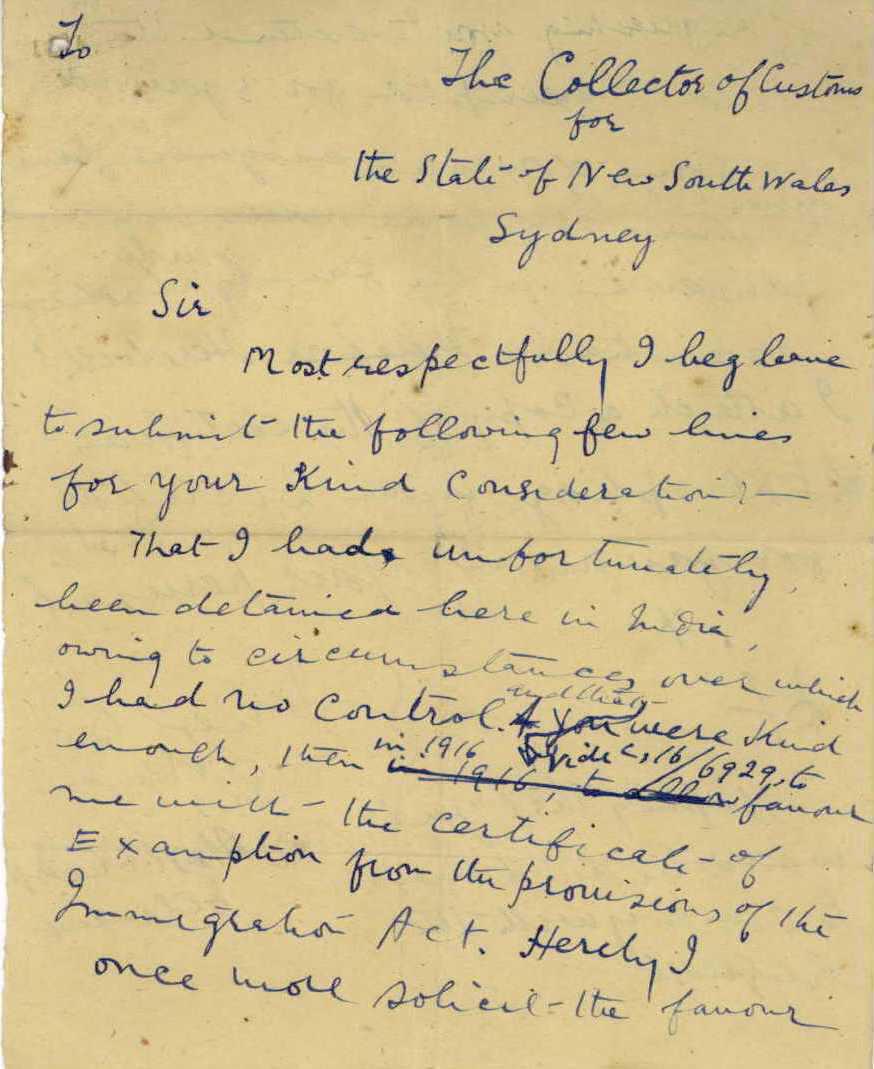 To
The Collector of Customs
for
the State of New South Wales
Sydney
Sir
Most respectfully I beg leave
to submit the following few lines
for your Kind Consideration:—
That I had, unfortunately,
been detained here in India,
owing to circumstances over which
I had no control. and that you were Kind
enough, then in 1916 vide C, 16/6929, to
in 1916, to allow favour
me with the certificate of
Examption from the provisions of the
Immigration Act. Hereby I
once more solicit the favour